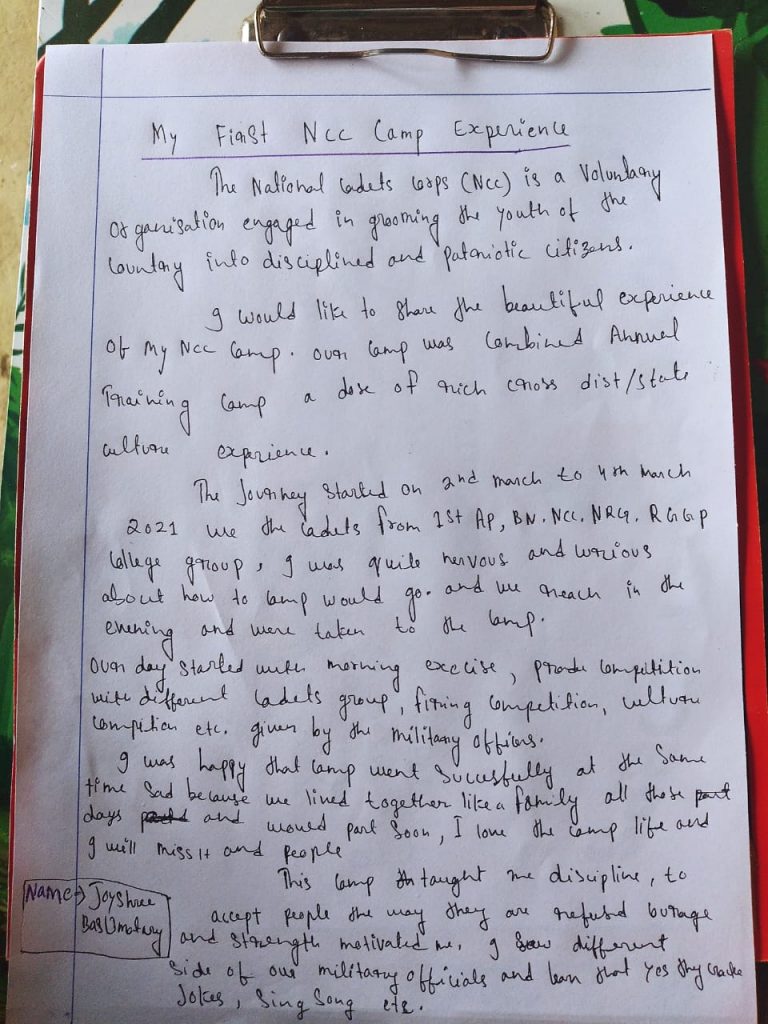 My First Ncc Camp Experience
The National Cadets Corps (Ncc) is a Voluntary
Organisation engaged in grooming the youth of the
Country into disciplined and patriotic citizens.
I would like to share the beautiful experience
Of My Ncc Camp. Our Camp was Combined Annual
Training Camp a dose of rich cross dist/state
culture experience.
The Journey started on 2nd march to 4th March
2021 we the Cadets from 1st AP, BN. Ncc. NRG. R G G P
College group, I was quite nervous and curious
about how to camp would go. and we reach in the
evening and were taken to the camp.
Our day started with morning excise, prade Compitition
with different Cadets group, firing Competition, culture
Compition etc. given by the military officers.
I was happy that camp went Succusfully at the same
time sad because we lived together like a family all those part
days and would part soon, I love the camp life and
I will miss it and people
This Camp taught me discipline, to
accept people the way they are refused burage
and strength motivated me, I saw different
side of our military officials and lean that yes thy cracke
Jokes, Sing Song etc.
Name → Joyshree
Basumatary